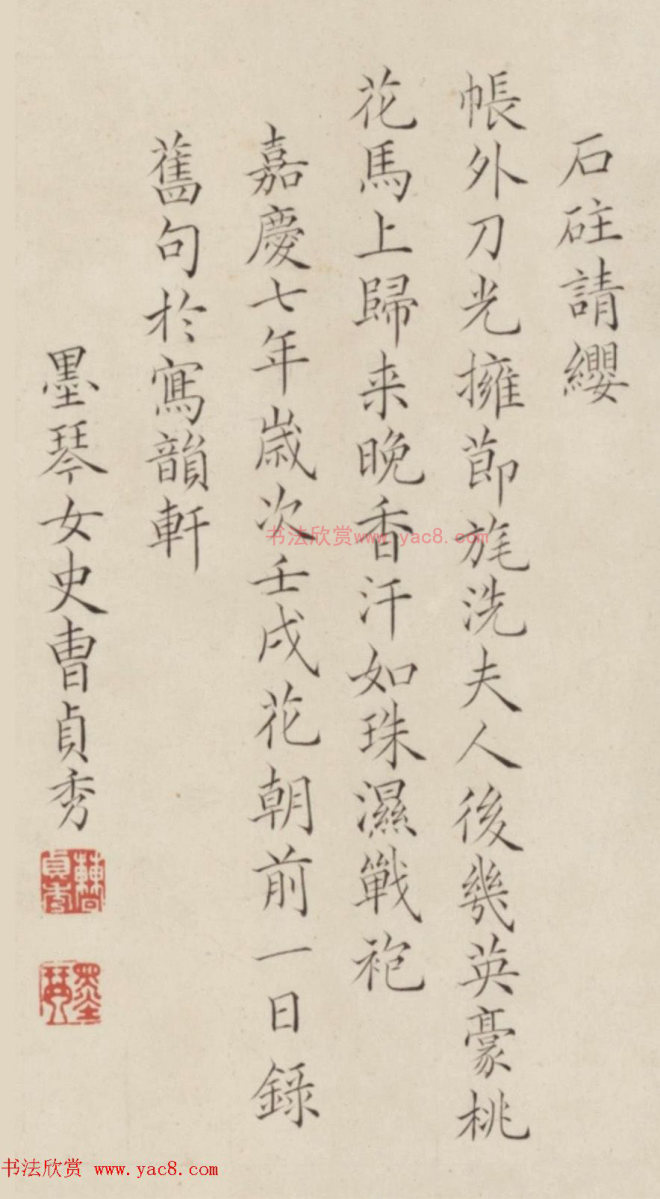 石砫請纓
帳外刀光擁節旄洗夫人後幾英豪桃
花馬上歸来晚香汗如珠濕戰袍
嘉慶七年歲次壬戌花朝前一日錄
舊句於寫韻軒
墨琴女史曹貞秀
墨琴
书法欣赏www.yac8.com
书法欣赏 www.yac8.com